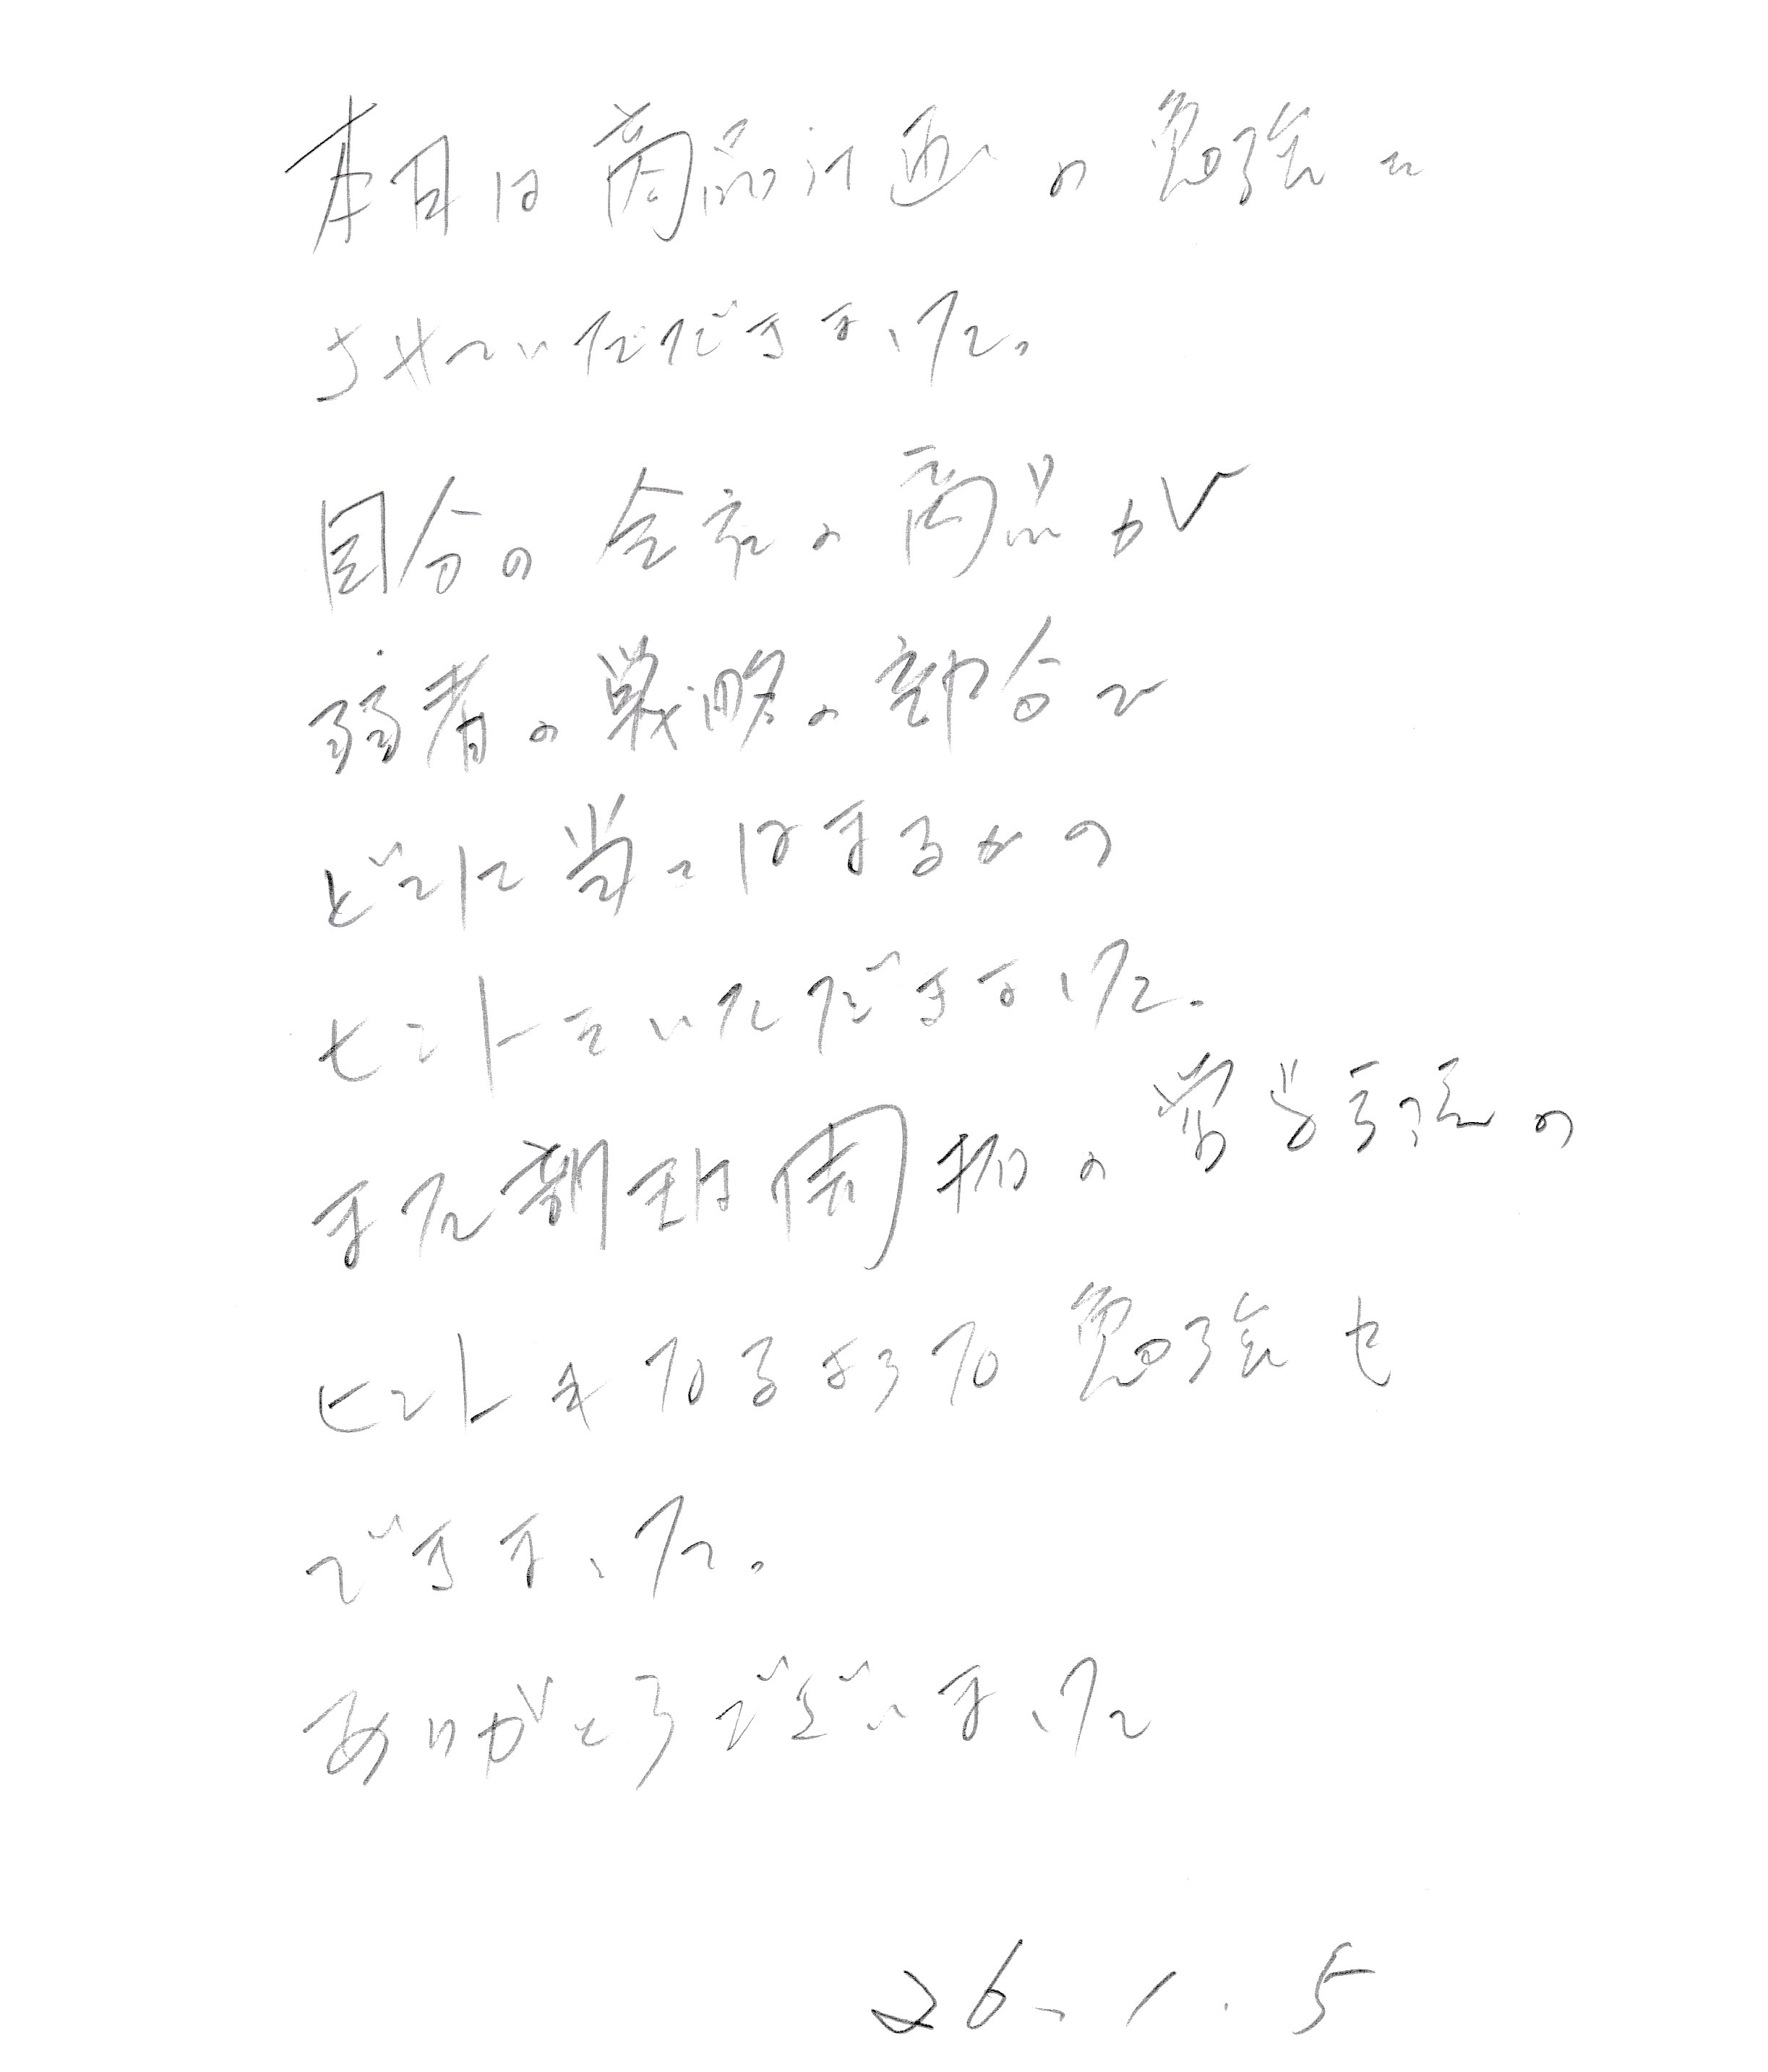 本日は商品の勉強を
させていただきました。
自分の会社の商品が
弱者の戦略の部分で
どこに当てはまるかの
ヒントをいただきました。
また新規開拓の営業の
ヒントとなるような勉強も
できました。
ありがとうございました
26.1.5